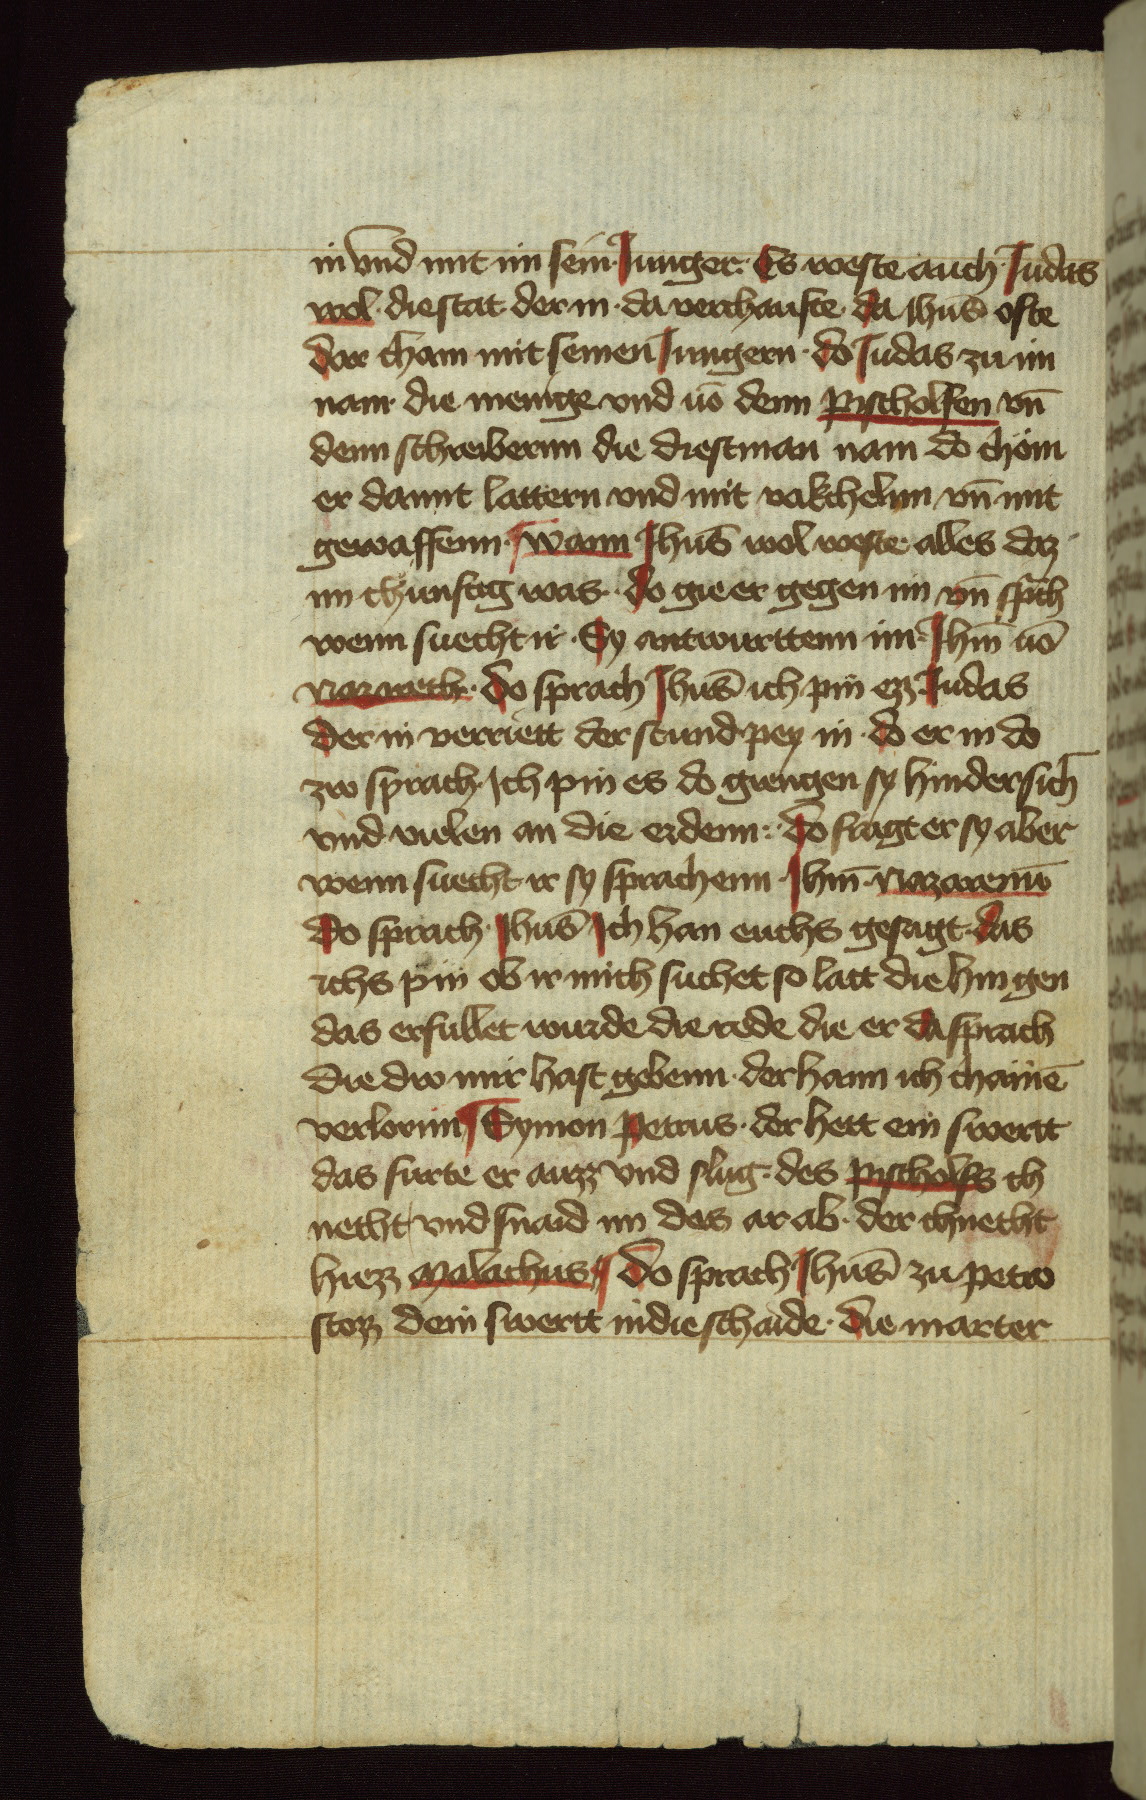 in vnd mit im sein Junger · Es weste auch Judas
wol · die stat der in · da verchaufte · da Jhūs ofte
dar cham mit seinen Jungern · do Judas zu im
nam · die menige vnd uō denn pischolfen vn̄
denn schreibernn die diestman nam do chom
er damit lattern vnd mit vakchelnn vn̄ mit
gewaffenn · Wann Jhūs wol weste alles daz
im chunftig was · do gie er gegen im vn̄ sp̄ch
wenn suecht ir · Sy antwurttenn im · Jhm̄ uō
Nazareth · Do sprach Jhūs ich pin ezz · Judas
der in verriett der stund pey in · do er in do
zw sprach · Ich pin es do giengen sy hindersich
vnd vielen an die erdenn · do fragt er sy aber
wenn suecht ir sy sprachenn · Jhm̄ · Nazarenū
Do sprach · Jhūs Ich han euchs gesagt · das
ichs pin ob ir mich suchet so latt die hin gen
das erfullet wurde die rede die er da sprach
Die dw mir hast gebenn · der hann ich chainē
verlornn Symon Petrus · der hett ein swertt
das furte er auzz vnd slug · des pischolfs ch
necht vnd snaid im des ar ab · der chnecht
hiezz Malachus Do sprach Jhūs zu petro
stozz dein swertt in die schaide · die marter